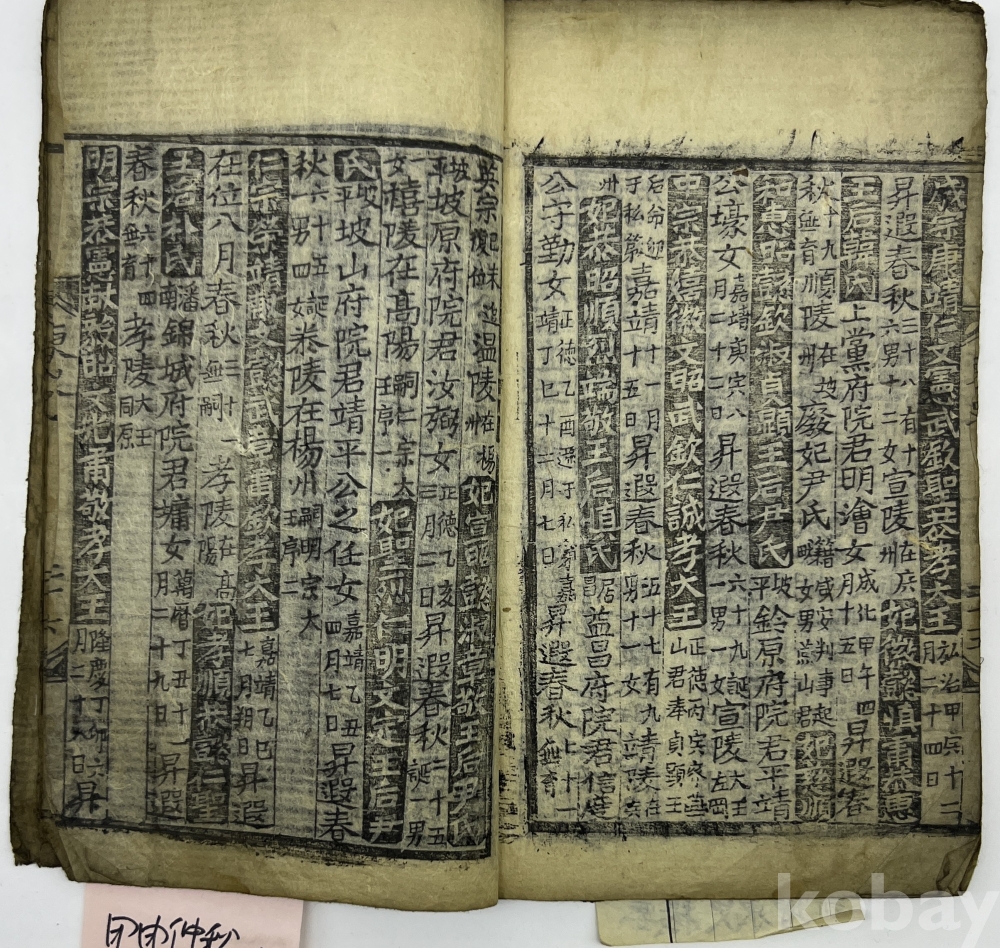 成宗康靖仁文憲武欽聖恭孝大王弘治甲寅十二月二十四日
昇遐春秋三十八有十六男十二女宣陵在廣州妃徽懿愼肅恭惠
王后韓氏上黨府院君明澮女成化甲午四月十五日昇遐春
秋十九無育順陵在坡州廢妃尹氏籍咸安判事起畎女男山君妃慈順
和惠昭懿欽淑貞顯王后尹氏坡平鈴原府院君平靖
公壕女嘉靖庚寅八月二十二日昇遐春秋六十九誕一男一女宣陵大王左岡
中宗恭僖徽文昭武欽仁誠孝大王正德丙寅山君奉貞顯王
后命迎于私第嘉靖十一月十五日昇遐春秋五十七有九男十一女靖陵在廣
州妃恭昭順烈端敬王后愼氏居昌益昌府院君信度
公守勤女正德乙酉遜于私第嘉靖丁巳十二月七日昇遐春秋七十一無育
英宗己未復位追溫陵在楊州妃宣昭懿淑章敬王后尹氏
坡平坡原府院君汝弼女正德乙亥三月二日昇遐春秋二十五誕一男
一女禧陵在高陽嗣仁宗大王序一妃聖烈仁明文定王后尹
氏坡平坡山府院君靖平公之任女嘉靖乙丑四月七日昇遐春
秋六十五誕一男四女泰陵在楊州嗣明宗大王序二
仁宗榮靖獻文懿武章肅欽孝大王嘉靖乙巳七月朔日昇遐
在位八月春秋三十一無嗣孝陵在高陽妃孝順恭懿仁聖
王后朴氏潘南錦城府院君墉女萬曆丁丑十一月二十九日昇遐
春秋六十四無育孝陵大王同原
明宗恭憲獻毅昭文光肅敬孝大王隆慶丁卯六月二十八日昇
kobay